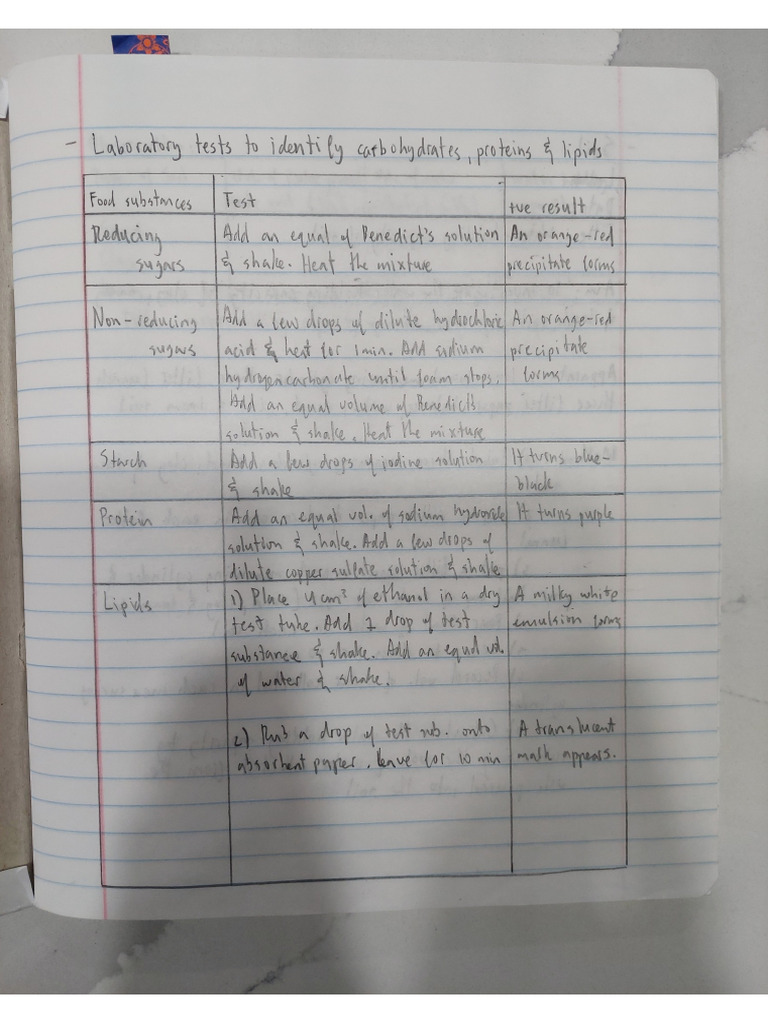 - Laboratory tests to identify carbohydrates, proteins & lipids
Food substances
Test
+ve result
Reducing
sugars
Add an equal of Benedict's solution
& shake. Heat the mixture
An orange-red
precipitate forms
Non-reducing
sugars
Add a few drops of dilute hydrochloric
acid & heat for 1min. Add sodium
hydrogencarbonate until foam stops.
Add an equal volume of Benedict's
solution & shake. Heat the mixture
An orange-red
precipitate
forms
Starch
Add a few drops of iodine solution
& shake
It turns blue-
black
Protein
Add an equal vol. of sodium hydroxide
solution & shake. Add a few drops of
dilute copper sulfate solution & shake
It turns purple
Lipids
1) Place 4cm³ of ethanol in a dry
test tube. Add 1 drop of test
substance & shake. Add an equal vol.
of water & shake.
A milky white
emulsion forms
2) Rub a drop of test sub. onto
absorbent paper. Leave for 10 min
A translucent
mark appears.